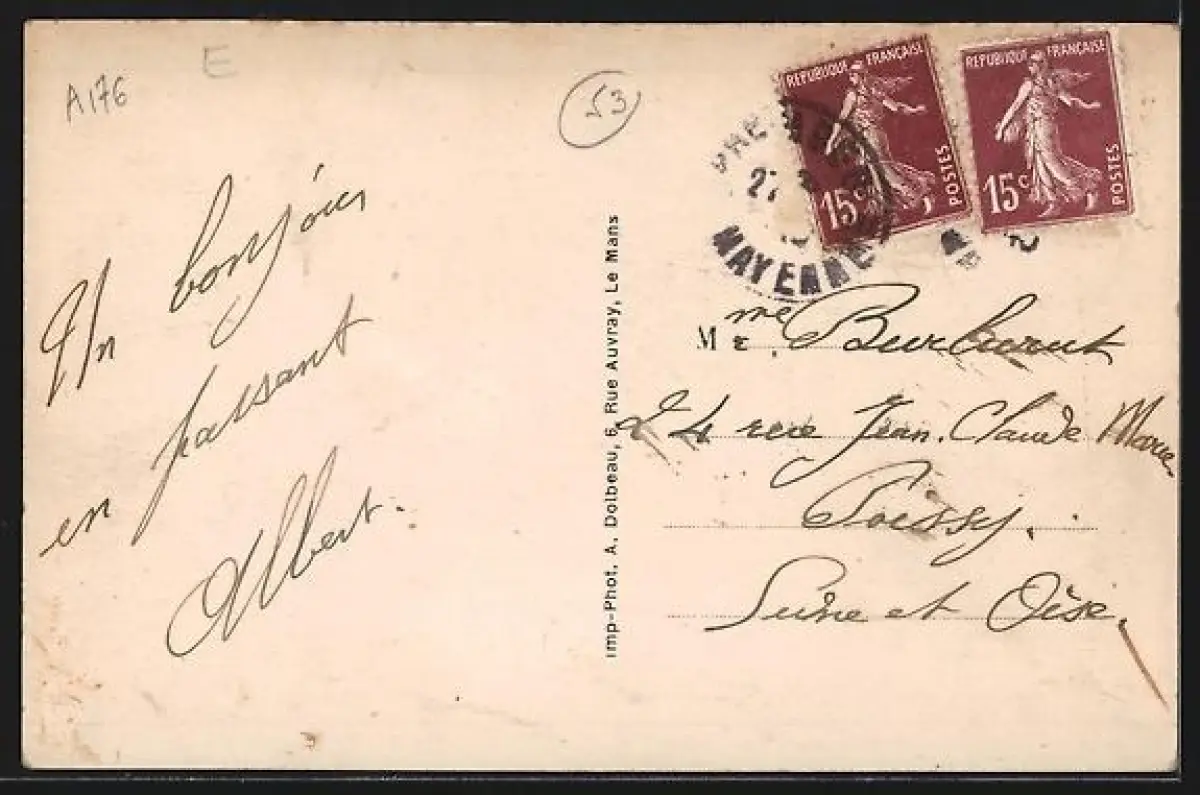 A176
E
53
Un bonjour
en passant
Albert.
Imp-Phot. A. Dolbeau, 6, Rue Auvray, Le Mans
REPUBLIQUE FRANÇAISE
15c POSTES
REPUBLIQUE FRANÇAISE
15c POSTES
PRE-
27
MAYENNE
Mme
24 rue Jean. Claude
Poissy.
Seine et Oise.